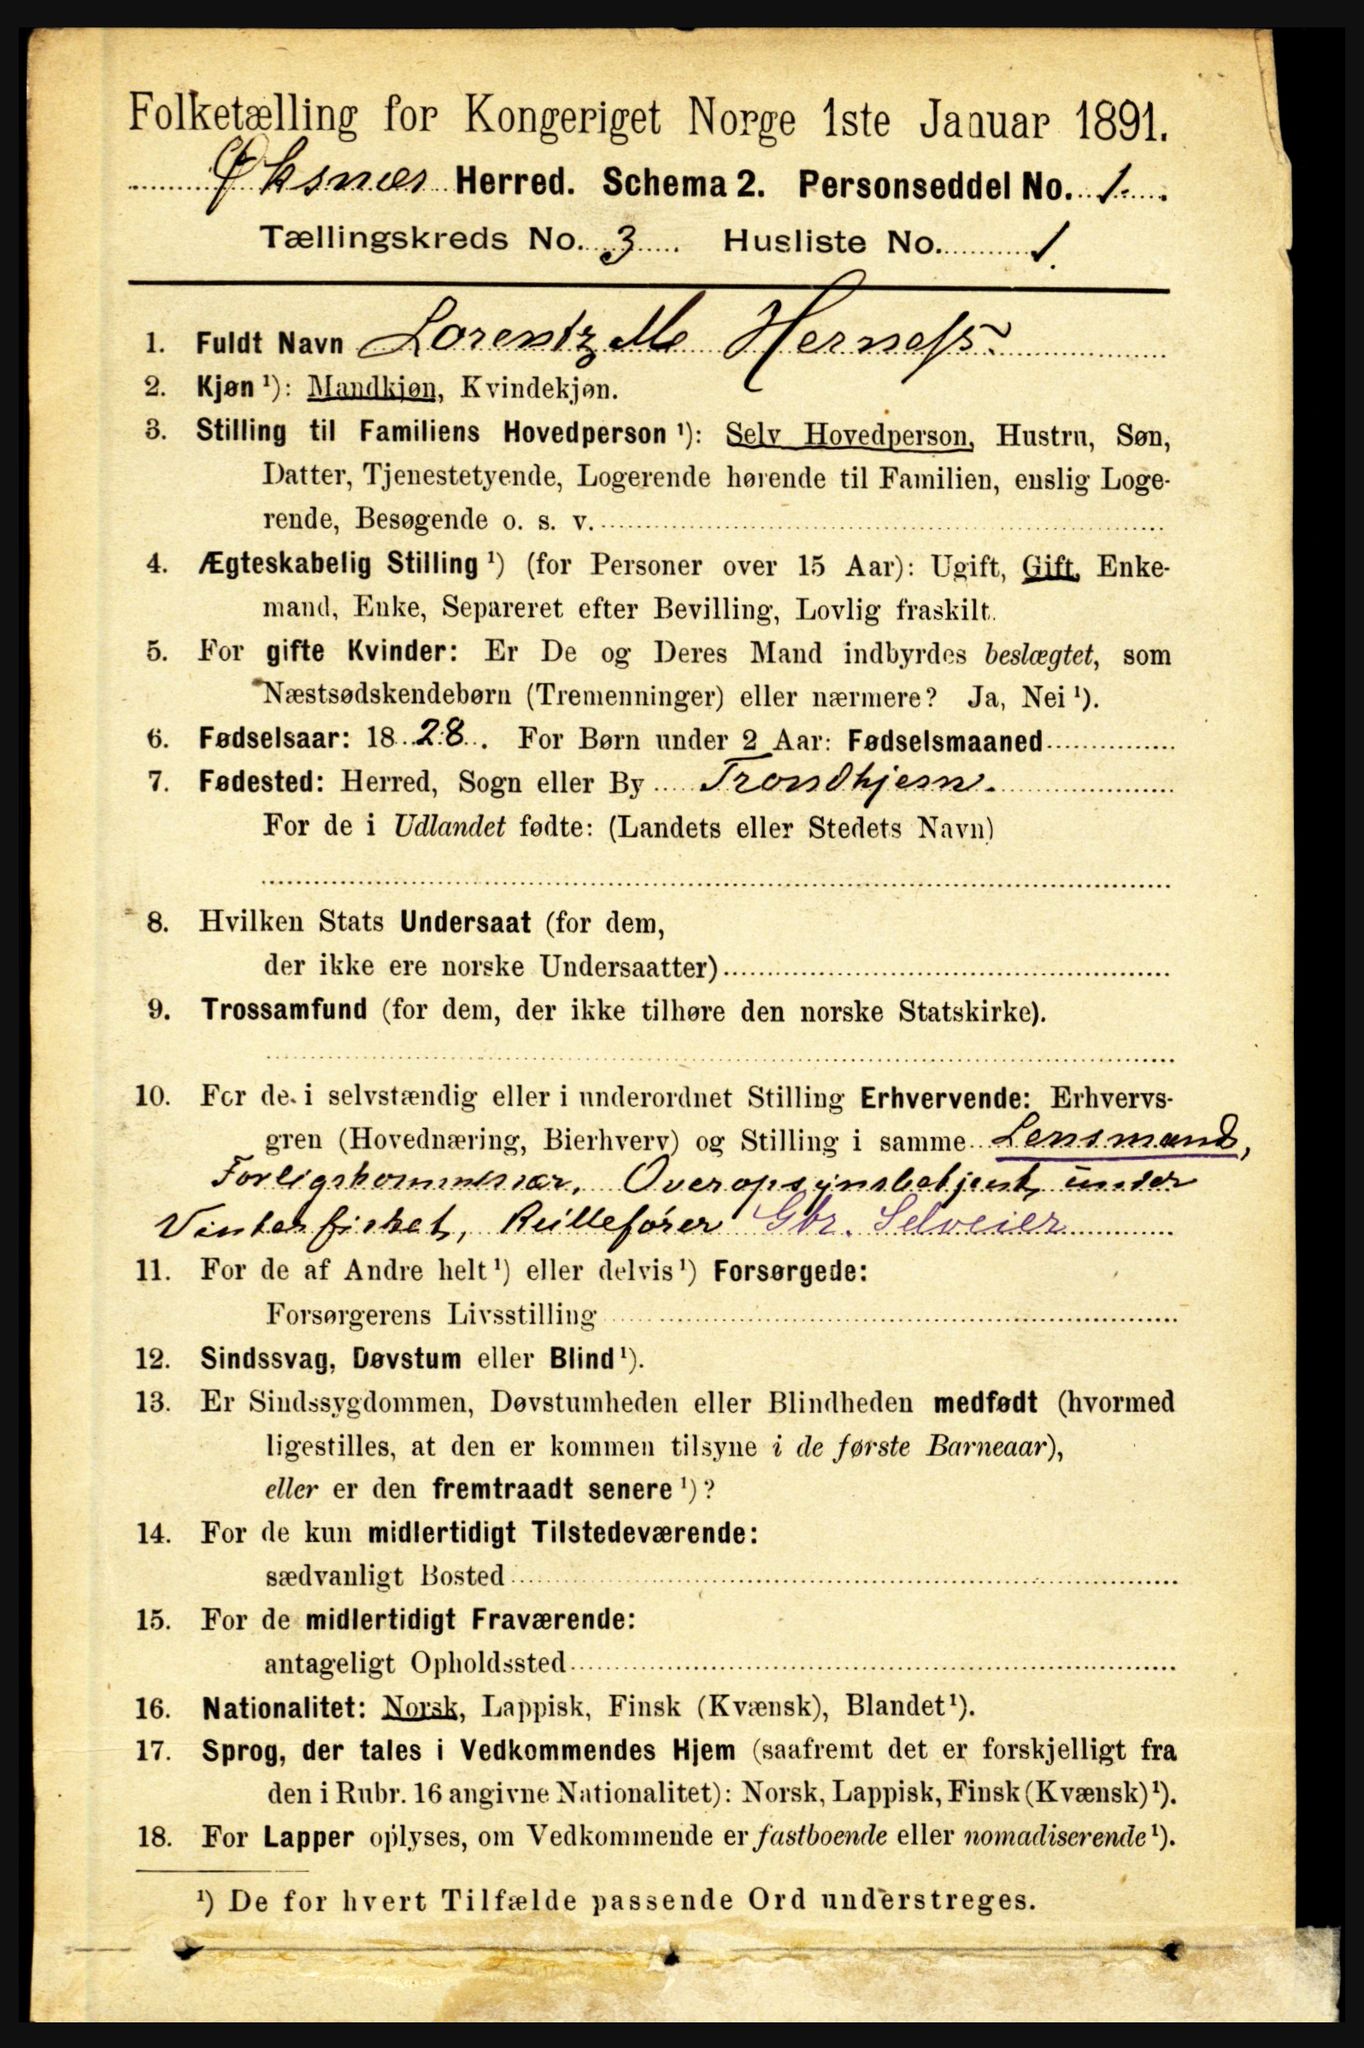 Folketælling for Kongeriget Norge 1ste Januar 1891.
Øksnæs Herred. Schema 2. Personseddel No. 1.
Tællingskreds No. 3. Husliste No. 1.
1. Fuldt Navn Lorentz M Herness.
2. Kjøn ¹): Mandkjøn, Kvindekjøn.
3. Stilling til Familiens Hovedperson ¹): Selv Hovedperson, Hustru, Søn,
Datter, Tjenestetyende, Logerende hørende til Familien, enslig Loge-
rende, Besøgende o. s. v.
4. Ægteskabelig Stilling ¹) (for Personer over 15 Aar): Ugift, Gift, Enke-
mand, Enke, Separeret efter Bevilling, Lovlig fraskilt.
5. For gifte Kvinder: Er De og Deres Mand indbyrdes beslægtet, som
Næstsødskendebørn (Tremenninger) eller nærmere? Ja, Nei ¹).
6. Fødselsaar: 1828. For Børn under 2 Aar: Fødselsmaaned
7. Fødested: Herred, Sogn eller By Trondhjem.
For de i Udlandet fødte: (Landets eller Stedets Navn)
8. Hvilken Stats Undersaat (for dem,
der ikke ere norske Undersaatter)
9. Trossamfund (for dem, der ikke tilhøre den norske Statskirke).
10. For de i selvstændig eller i underordnet Stilling Erhvervende: Erhvervs-
gren (Hovednæring, Bierhverv) og Stilling i samme Lensmand,
Forligskommissær, Overopsynsbetjent under
Vinterfisket, Rullefører Gbr. Selveier
11. For de af Andre helt ¹) eller delvis ¹) Forsørgede:
Forsørgerens Livsstilling
12. Sindssvag, Døvstum eller Blind ¹).
13. Er Sindssygdommen, Døvstumheden eller Blindheden medfødt (hvormed
ligestilles, at den er kommen tilsyne i de første Barneaar),
eller er den fremtraadt senere ¹)?
14. For de kun midlertidigt Tilstedeværende:
sædvanligt Bosted
15. For de midlertidigt Fraværende:
antageligt Opholdssted
16. Nationalitet: Norsk, Lappisk, Finsk (Kvænsk), Blandet ¹).
17. Sprog, der tales i Vedkommendes Hjem (saafremt det er forskjelligt fra
den i Rubr. 16 angivne Nationalitet): Norsk, Lappisk, Finsk (Kvænsk) ¹).
18. For Lapper oplyses, om Vedkommende er fastboende eller nomadiserende ¹).
¹) De for hvert Tilfælde passende Ord understreges.